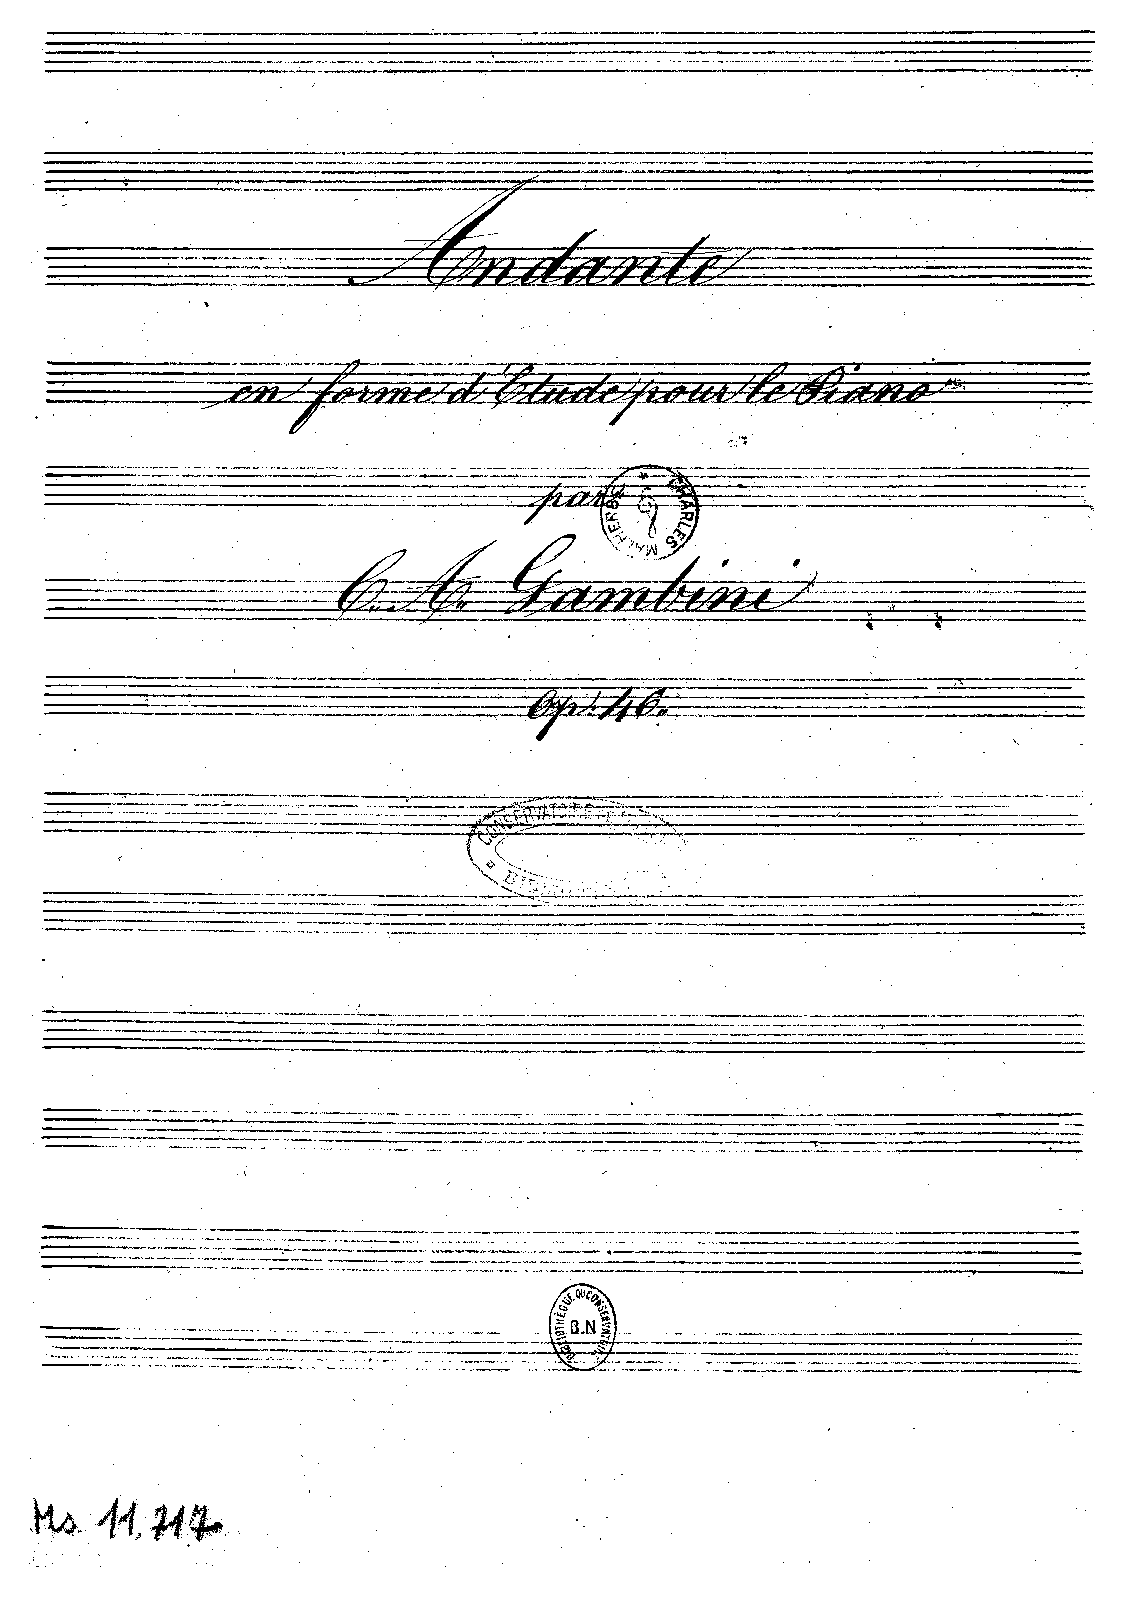 Andante
en forme d'Etude pour le Piano
par
CHARLES MALHERBE
C. A. Gambini
Op: 46.
CONSERVATOIRE DE
BIBLIOTHÈQUE DU CONSERVATOIRE
B.N
Ms 11,717